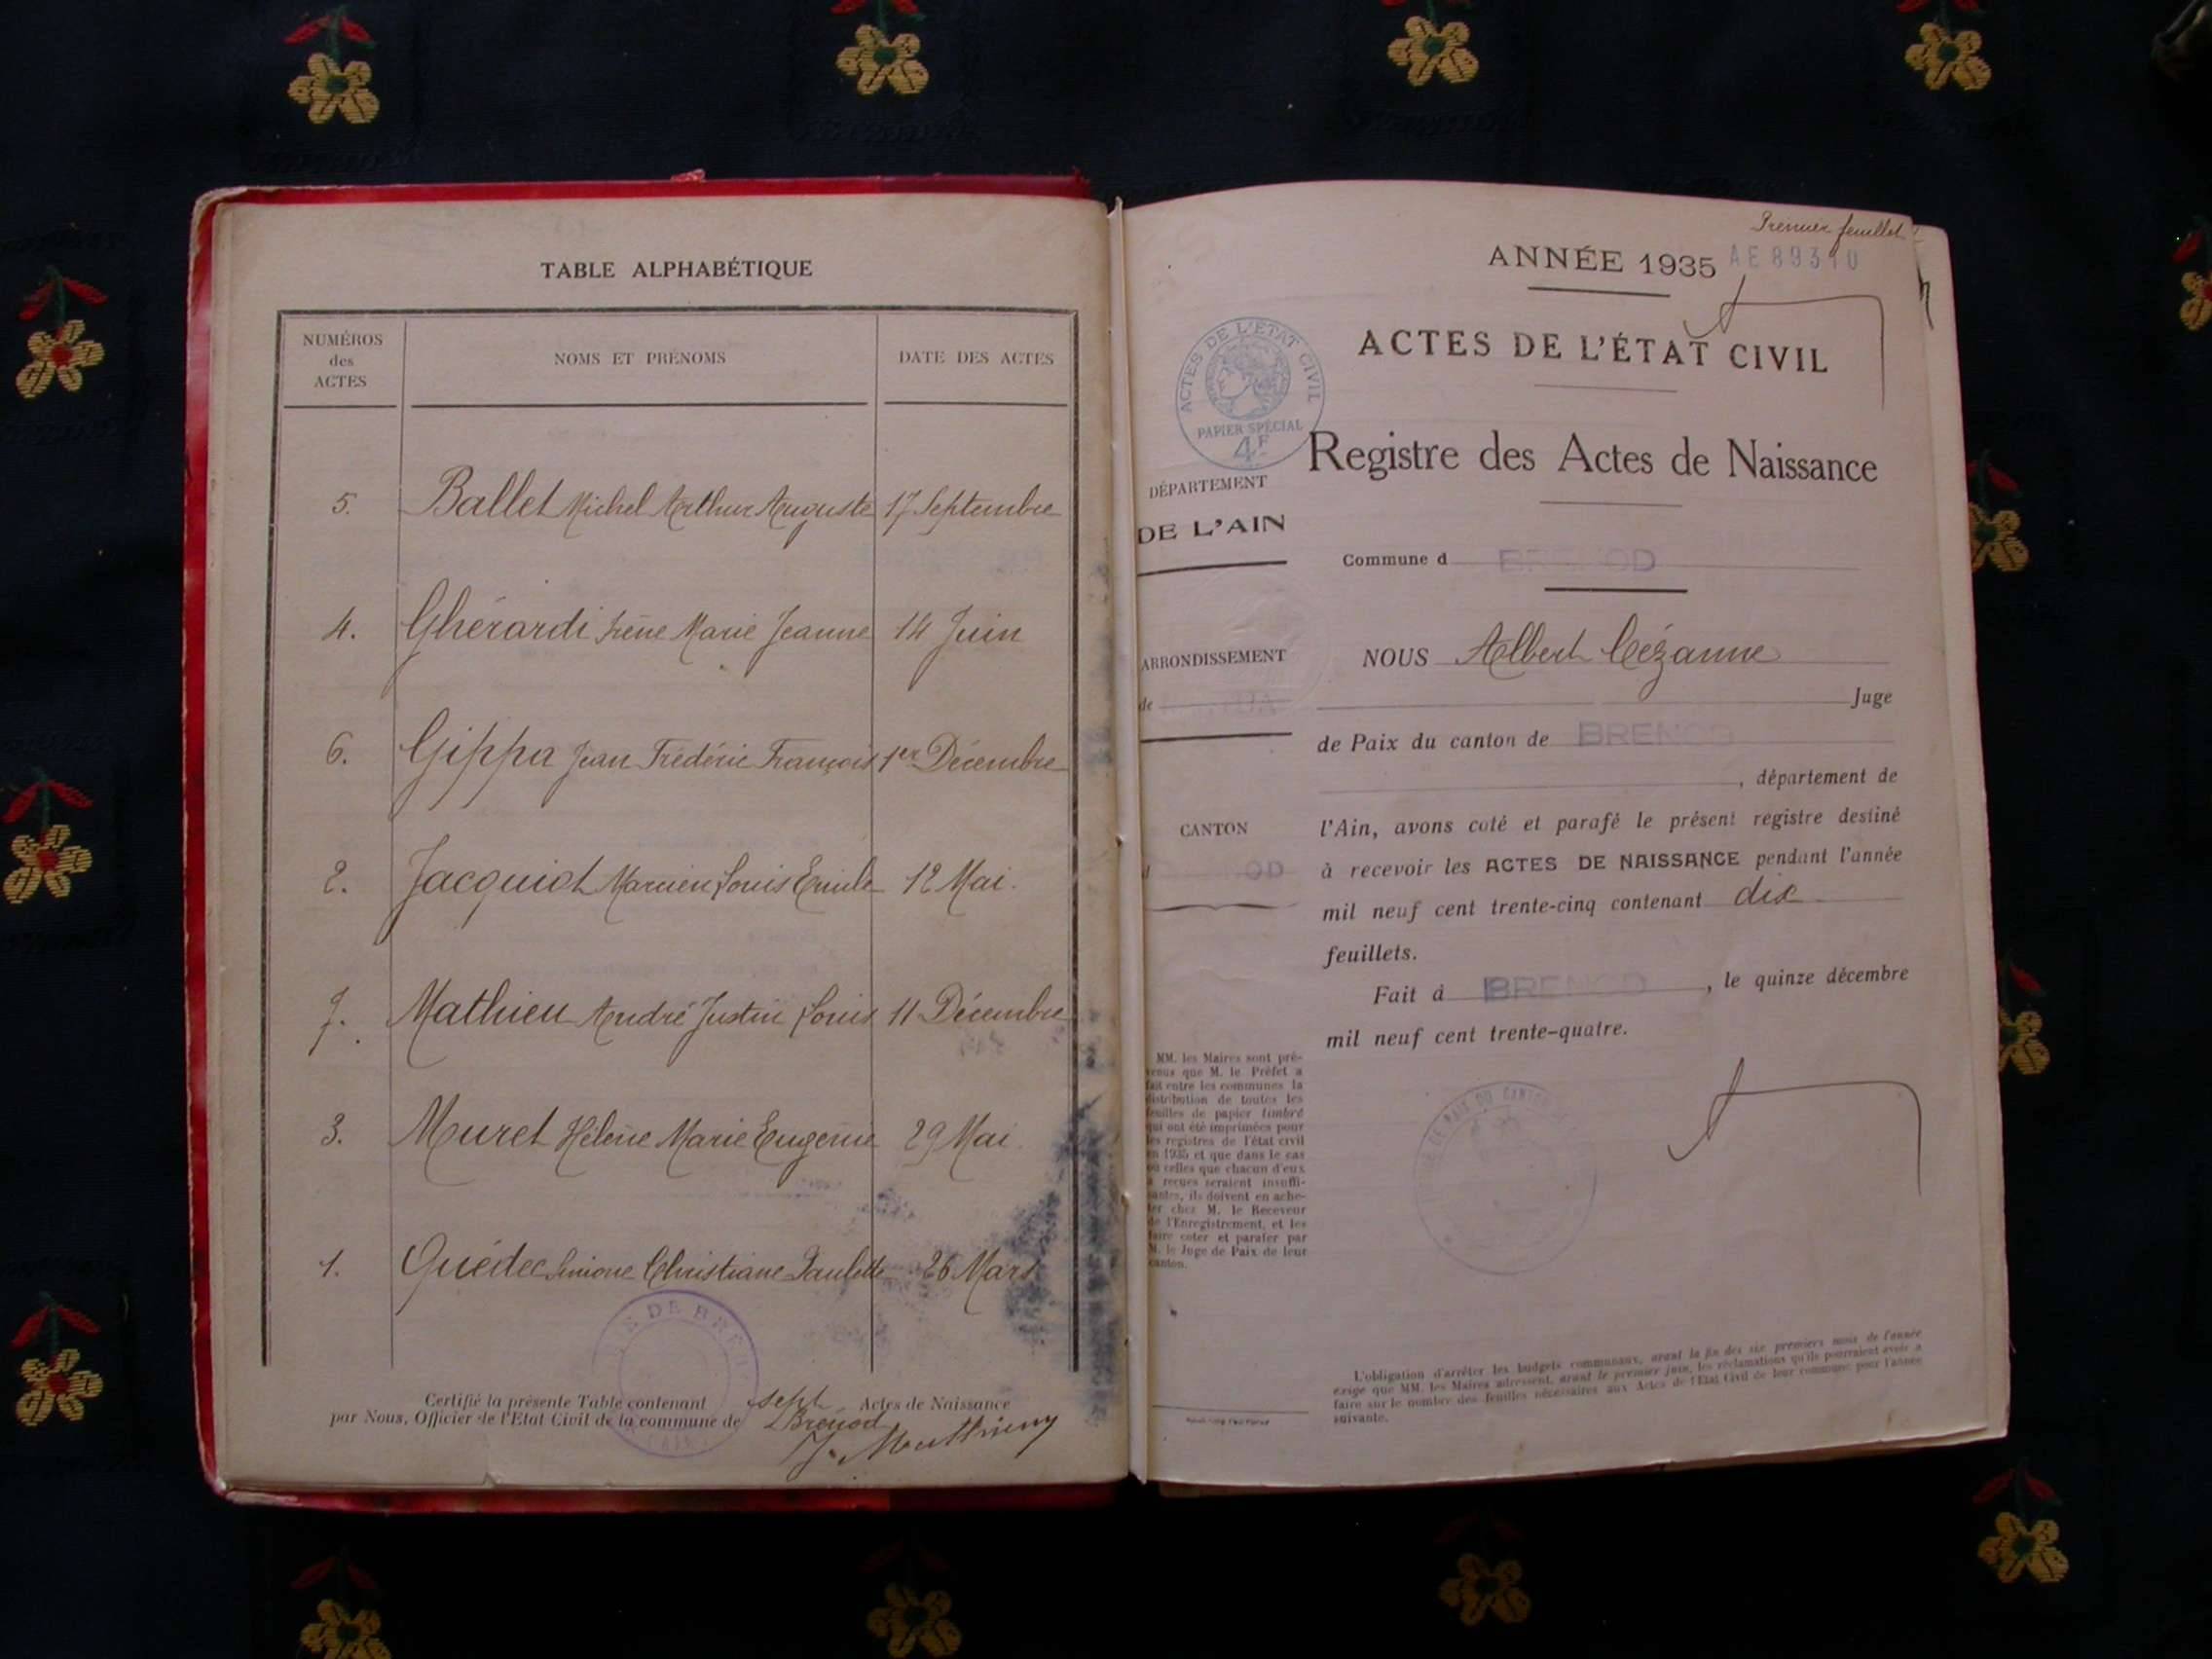 TABLE ALPHABÉTIQUE
NUMÉROS
des
ACTES
NOMS ET PRÉNOMS
DATE DES ACTES
5. Ballet Michel Arthur Auguste 17 Septembre
4. Ghérardi Irène Marie Jeanne 14 Juin
6. Gippa Jean Frédéric François 1er Décembre
2. Jacquiot Marcien Louis Emile 12 Mai.
7. Mathieu André Justin Louis 11 Décembre
3. Muret Hélène Marie Eugénie 29 Mai.
1. Quédec Simone Christiane Paulette 26 Mars
Certifié la présente Table contenant sept Actes de Naissance
par Nous, Officier de l'Etat Civil de la commune de Brénod
Premier feuillet
ANNÉE 1935 AE 89310
ACTES DE L'ÉTAT CIVIL
ACTES DE L'ETAT CIVIL
PAPIER SPÉCIAL
4F
Registre des Actes de Naissance
DÉPARTEMENT
DE L'AIN
Commune d BRENOD
ARRONDISSEMENT
de
NOUS Albert Cézanne
Juge
de Paix du canton de BRENOD
, département de
CANTON
OD
l'Ain, avons coté et parafé le présent registre destiné
à recevoir les ACTES DE NAISSANCE pendant l'année
mil neuf cent trente-cinq contenant dix
feuillets.
Fait à BRENOD, le quinze décembre
mil neuf cent trente-quatre.
MM. les Maires sont pré-
venus que M. le Préfet a
fait entre les communes la
distribution de toutes les
feuilles de papier timbré
qui ont été imprimées pour
les registres de l'état civil
en 1935 et que dans le cas
où celles que chacun d'eux
a reçues seraient insuffi-
santes, ils doivent en ache-
ter chez M. le Receveur
de l'Enregistrement, et les
faire coter et parafer par
M. le Juge de Paix de leur
canton.
DE PAIX DU CANTON
L'obligation d'arrêter les budgets communaux, avant la fin des six premiers mois de l'année
exige que MM. les Maires adressent, avant le premier juin, les réclamations qu'ils pourraient avoir à
faire sur le nombre des feuilles nécessaires aux Actes de l'Etat Civil de leur commune pour l'année
suivante.